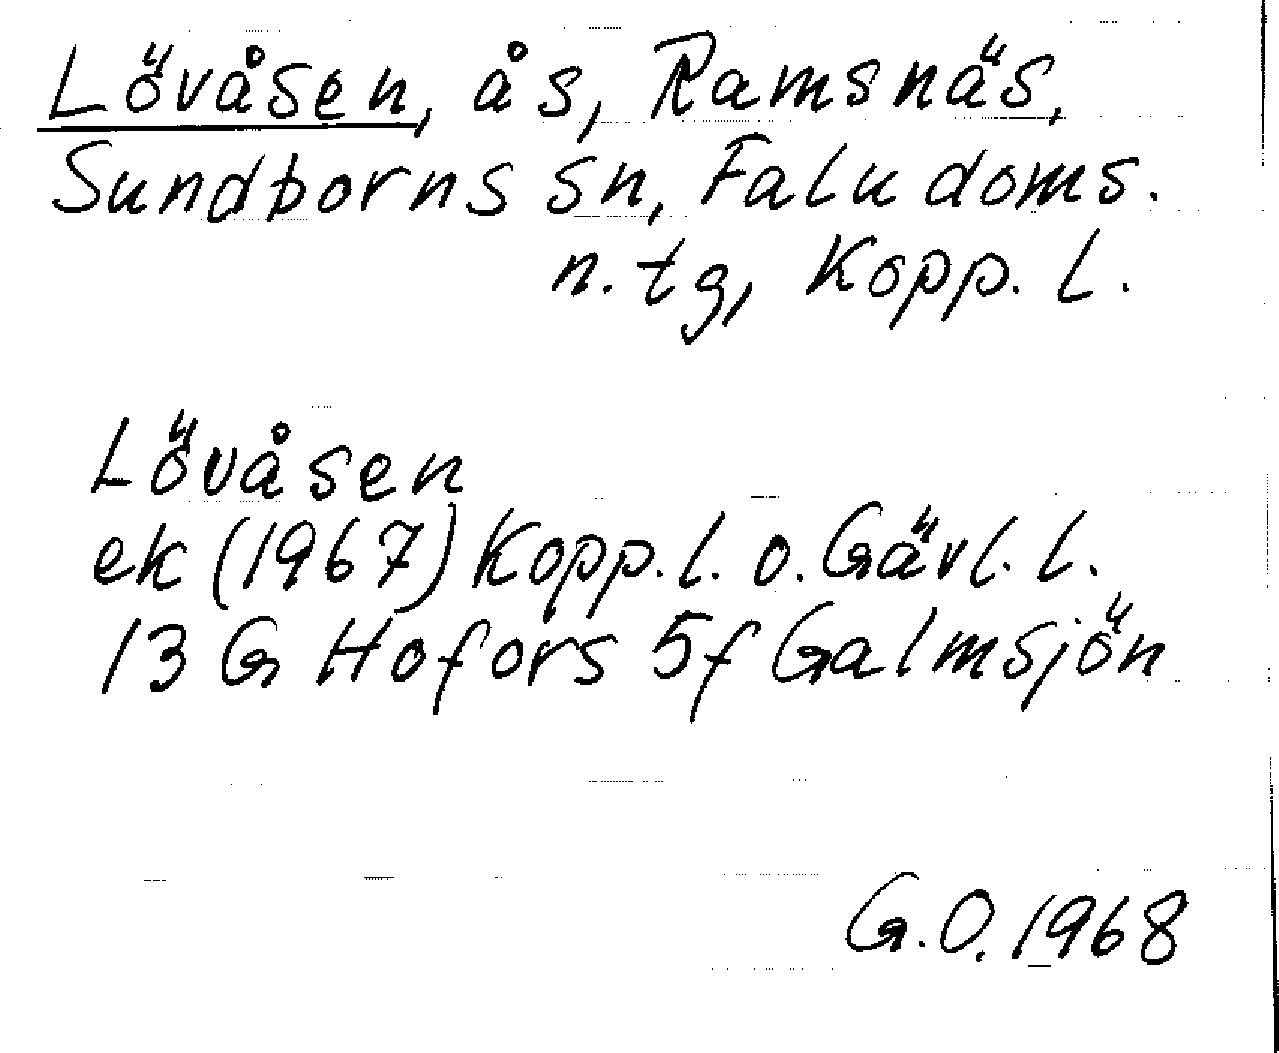 Lövåsen, ås, Ramsnäs,
Sundborns sn, Falu doms.
n. tg, Kopp. l.
Lövåsen
ek (1967) Kopp. l. o. Gävl. l.
13 G Hofors 5f Galmsjön
G.O. 1968